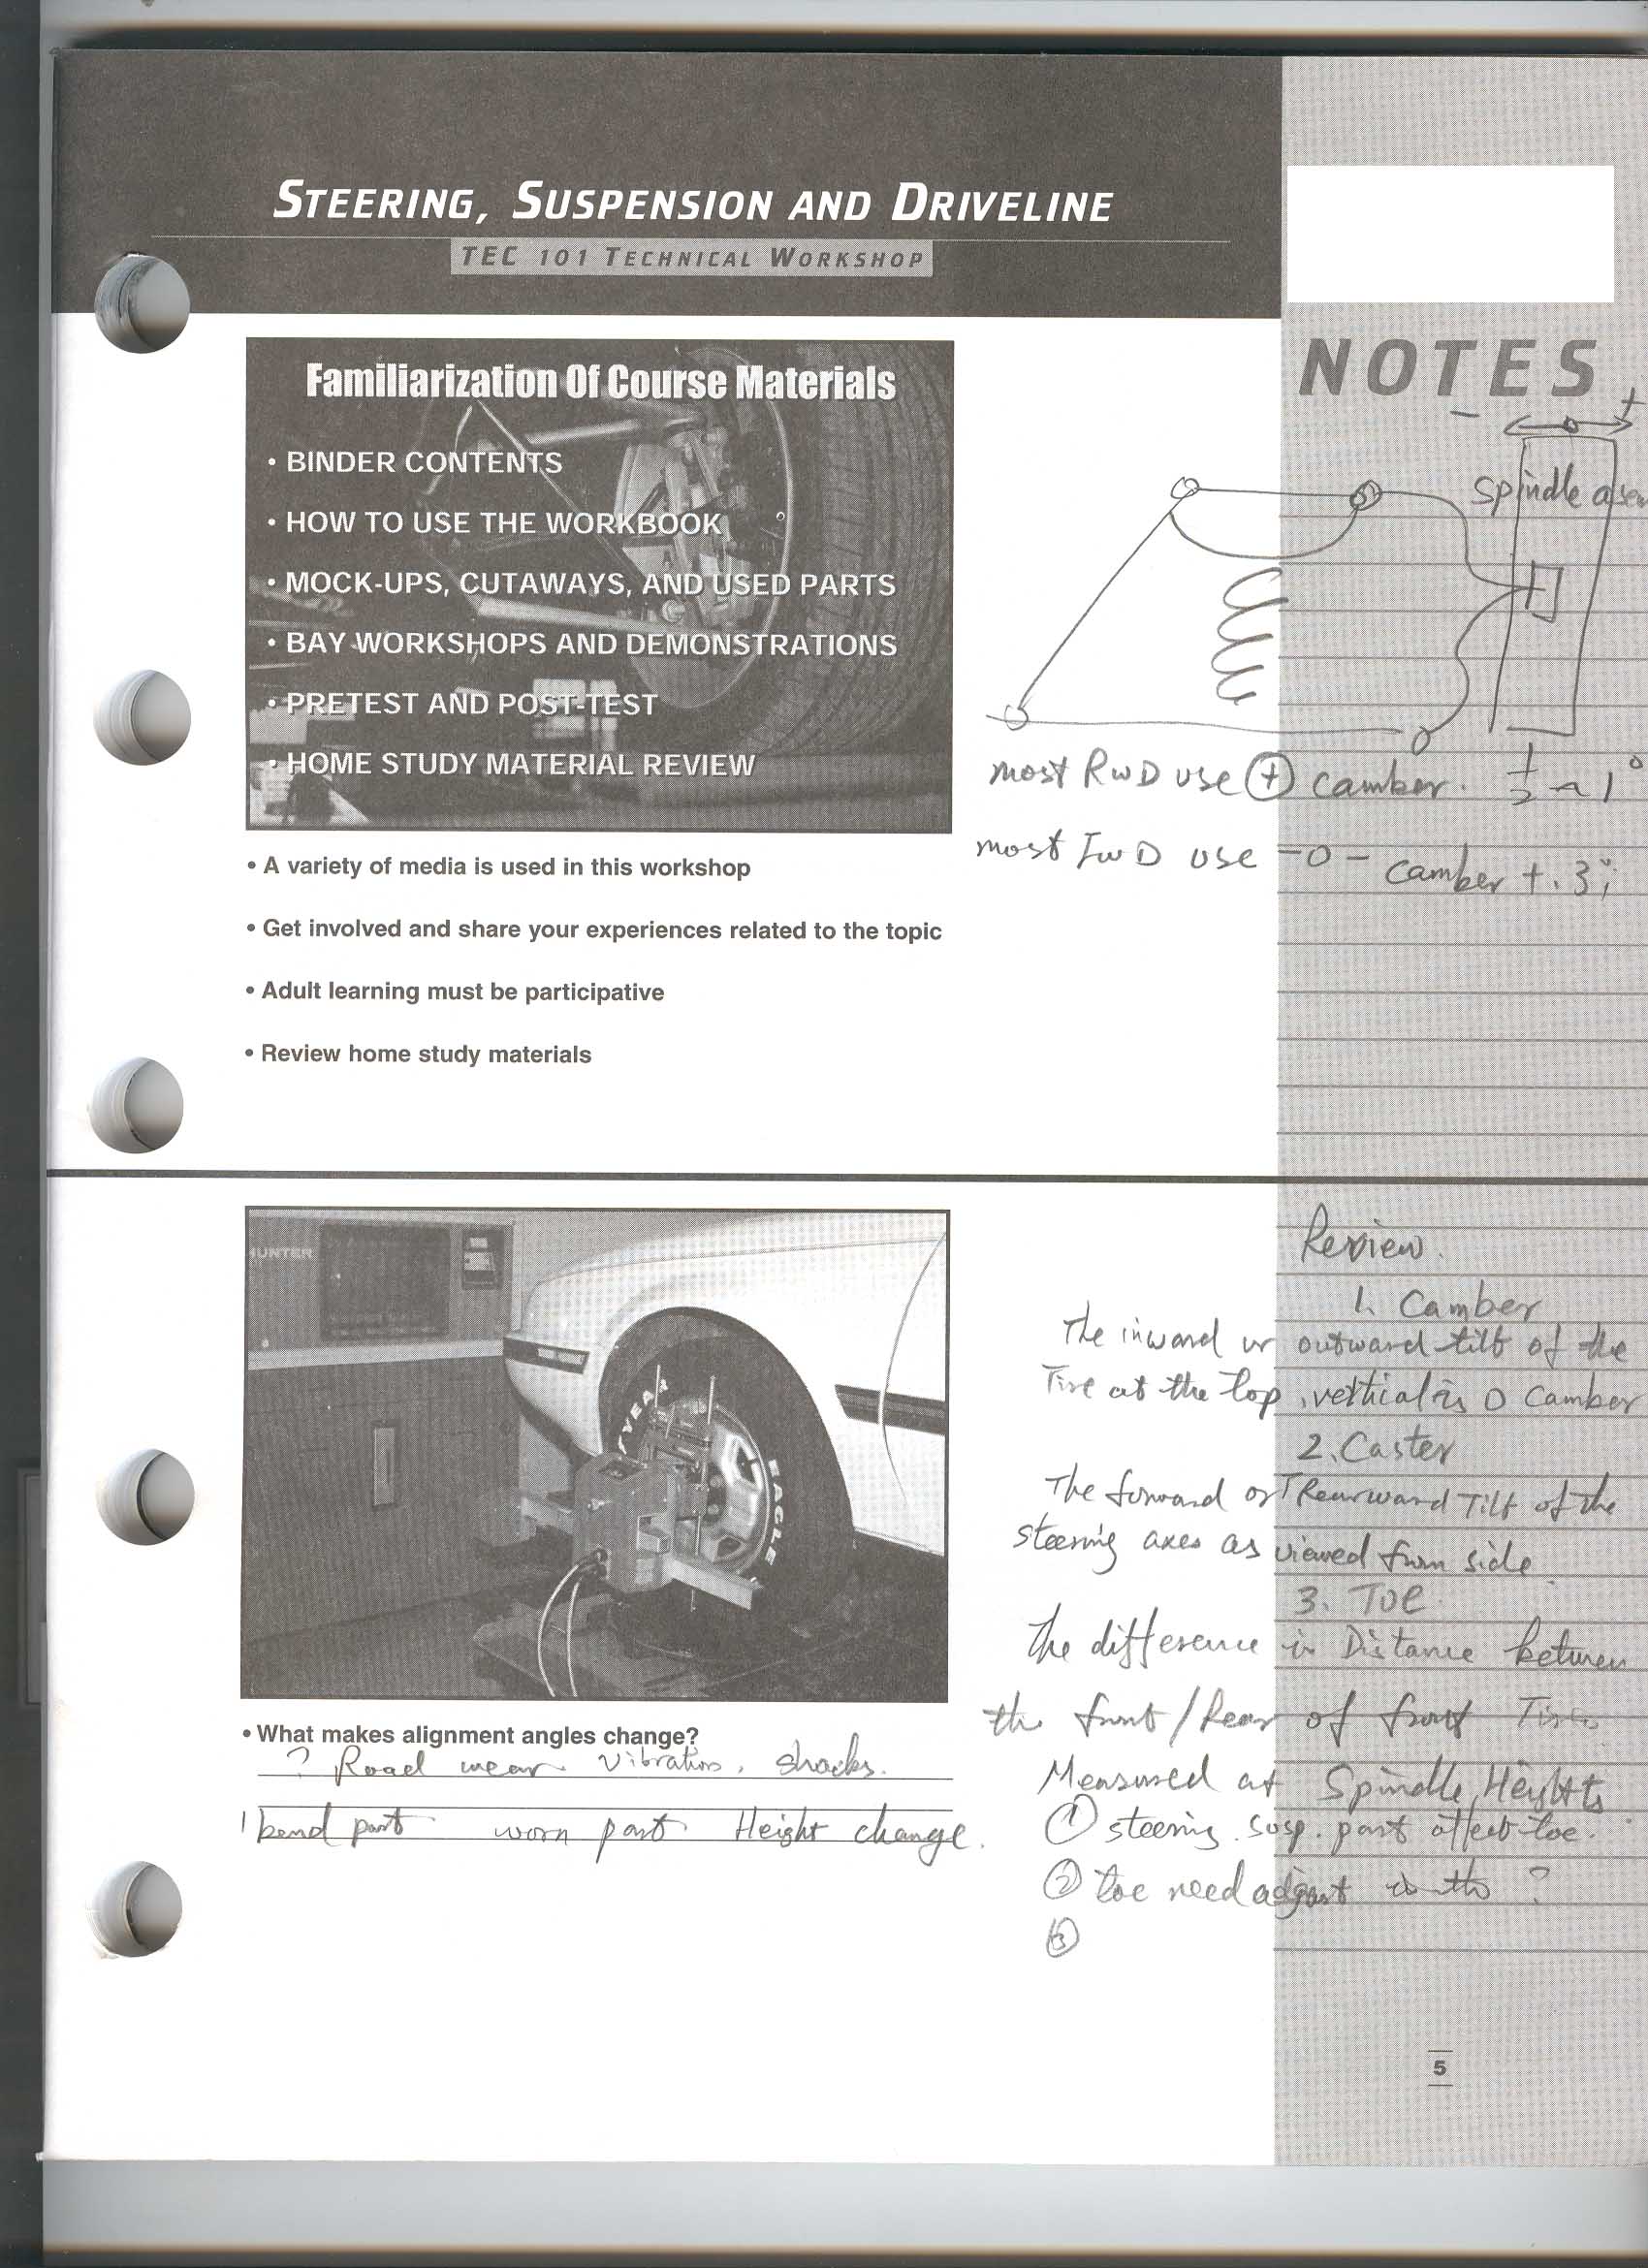 STEERING, SUSPENSION AND DRIVELINE
TEC 101 TECHNICAL WORKSHOP
NOTES
Familiarization Of Course Materials
• BINDER CONTENTS
• HOW TO USE THE WORKBOOK
• MOCK-UPS, CUTAWAYS, AND USED PARTS
• BAY WORKSHOPS AND DEMONSTRATIONS
• PRETEST AND POST-TEST
• HOME STUDY MATERIAL REVIEW
- +
Spindle
most RWD use (+) camber. 1/2 ~ 1°
most FWD use -0- camber +.3;
• A variety of media is used in this workshop
• Get involved and share your experiences related to the topic
• Adult learning must be participative
• Review home study materials
HUNTER
YEAR
EAGLE
• What makes alignment angles change?
? Road wear. Vibration, shocks.
1 bend part worn part. Height change.
Review.
1. Camber
The inward or outward tilt of the
Tire at the top, vertical is 0 Camber
2. Caster
The forward or Rearward Tilt of the
steering axes as viewed from side
3. Toe
The difference in Distance between
the front/Rear of front Tires
Measured at Spindle Height
① steering. susp. part affect toe.
② toe need adjust ?
③
5